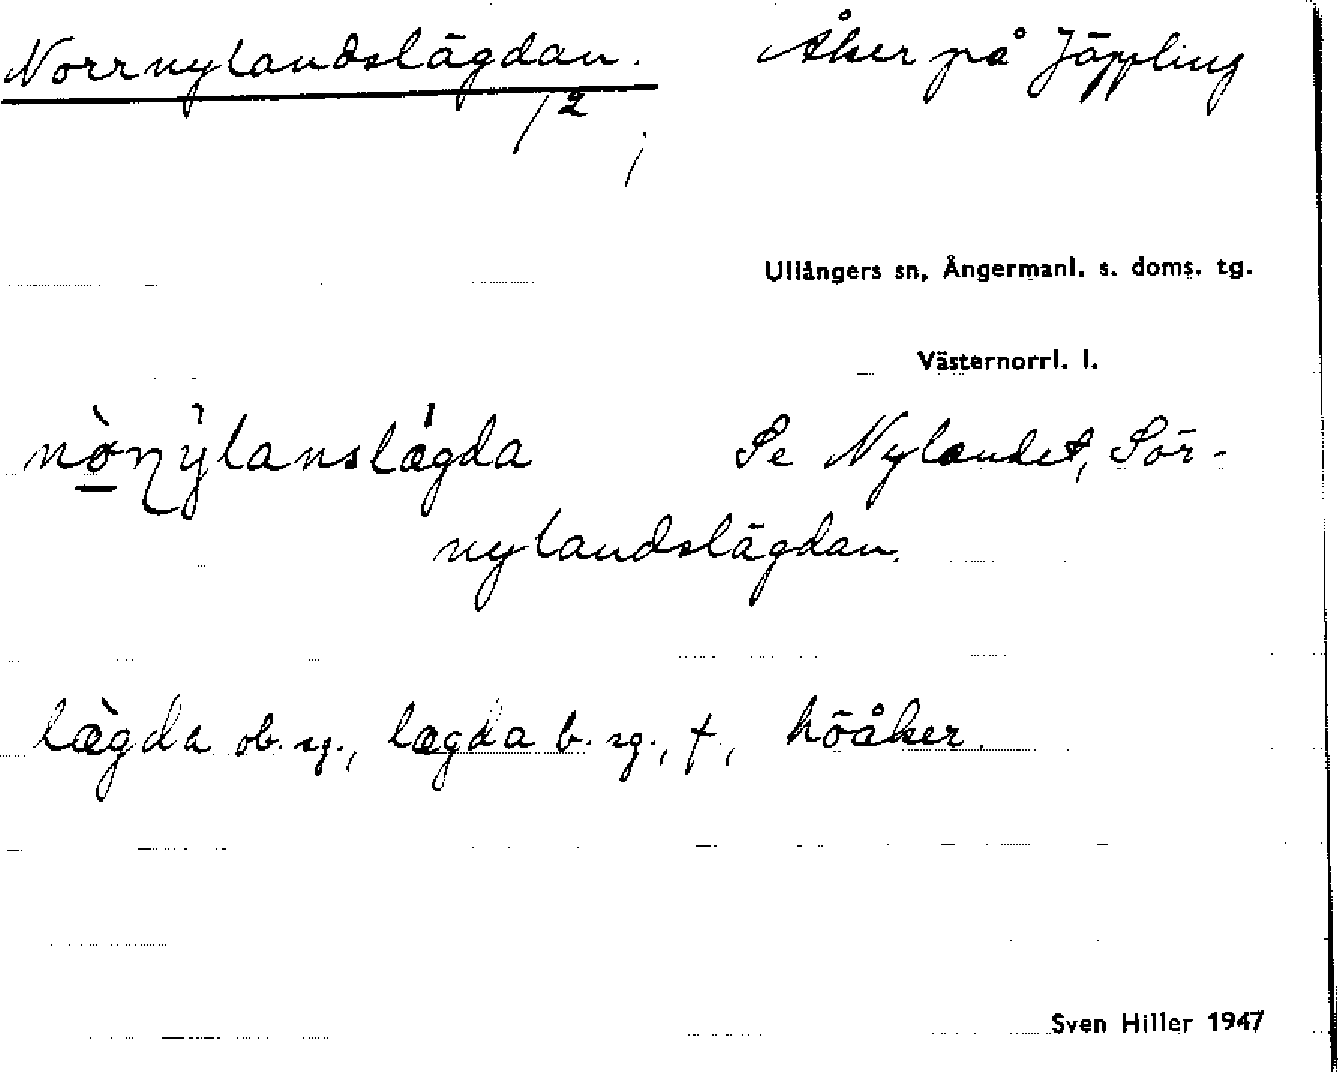 Norrnylandslägdan. Åker på Jäppling
/2
/
Ullångers sn, Ångermanl. s. doms. tg.
Västernorrl. l.
nò̲ŋỳlanslágda Se Nylandet, Sör-
nylandslägdan.
lægda ob. sg., lægda b. sg., †, höåker.
Sven Hiller 1947